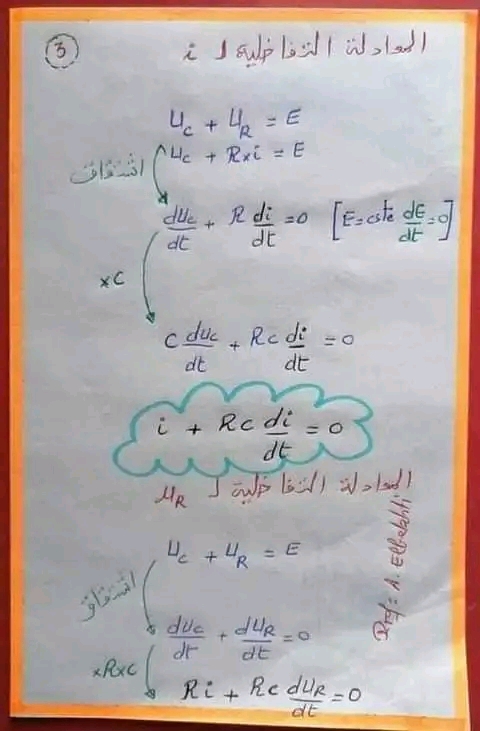 3
المعادلة التفاضلية ل i
u_C + u_R = E
u_C + R×i = E
اشتقاق
du_C/dt + R di/dt = 0 [E = cste dE/dt = 0]
×C
C du_C/dt + RC di/dt = 0
i + RC di/dt = 0
المعادلة التفاضلية ل u_R
u_C + u_R = E
اشتقاق
du_C/dt + du_R/dt = 0
×R×C
Ri + RC du_R/dt = 0
Prof: A. Elbakhti